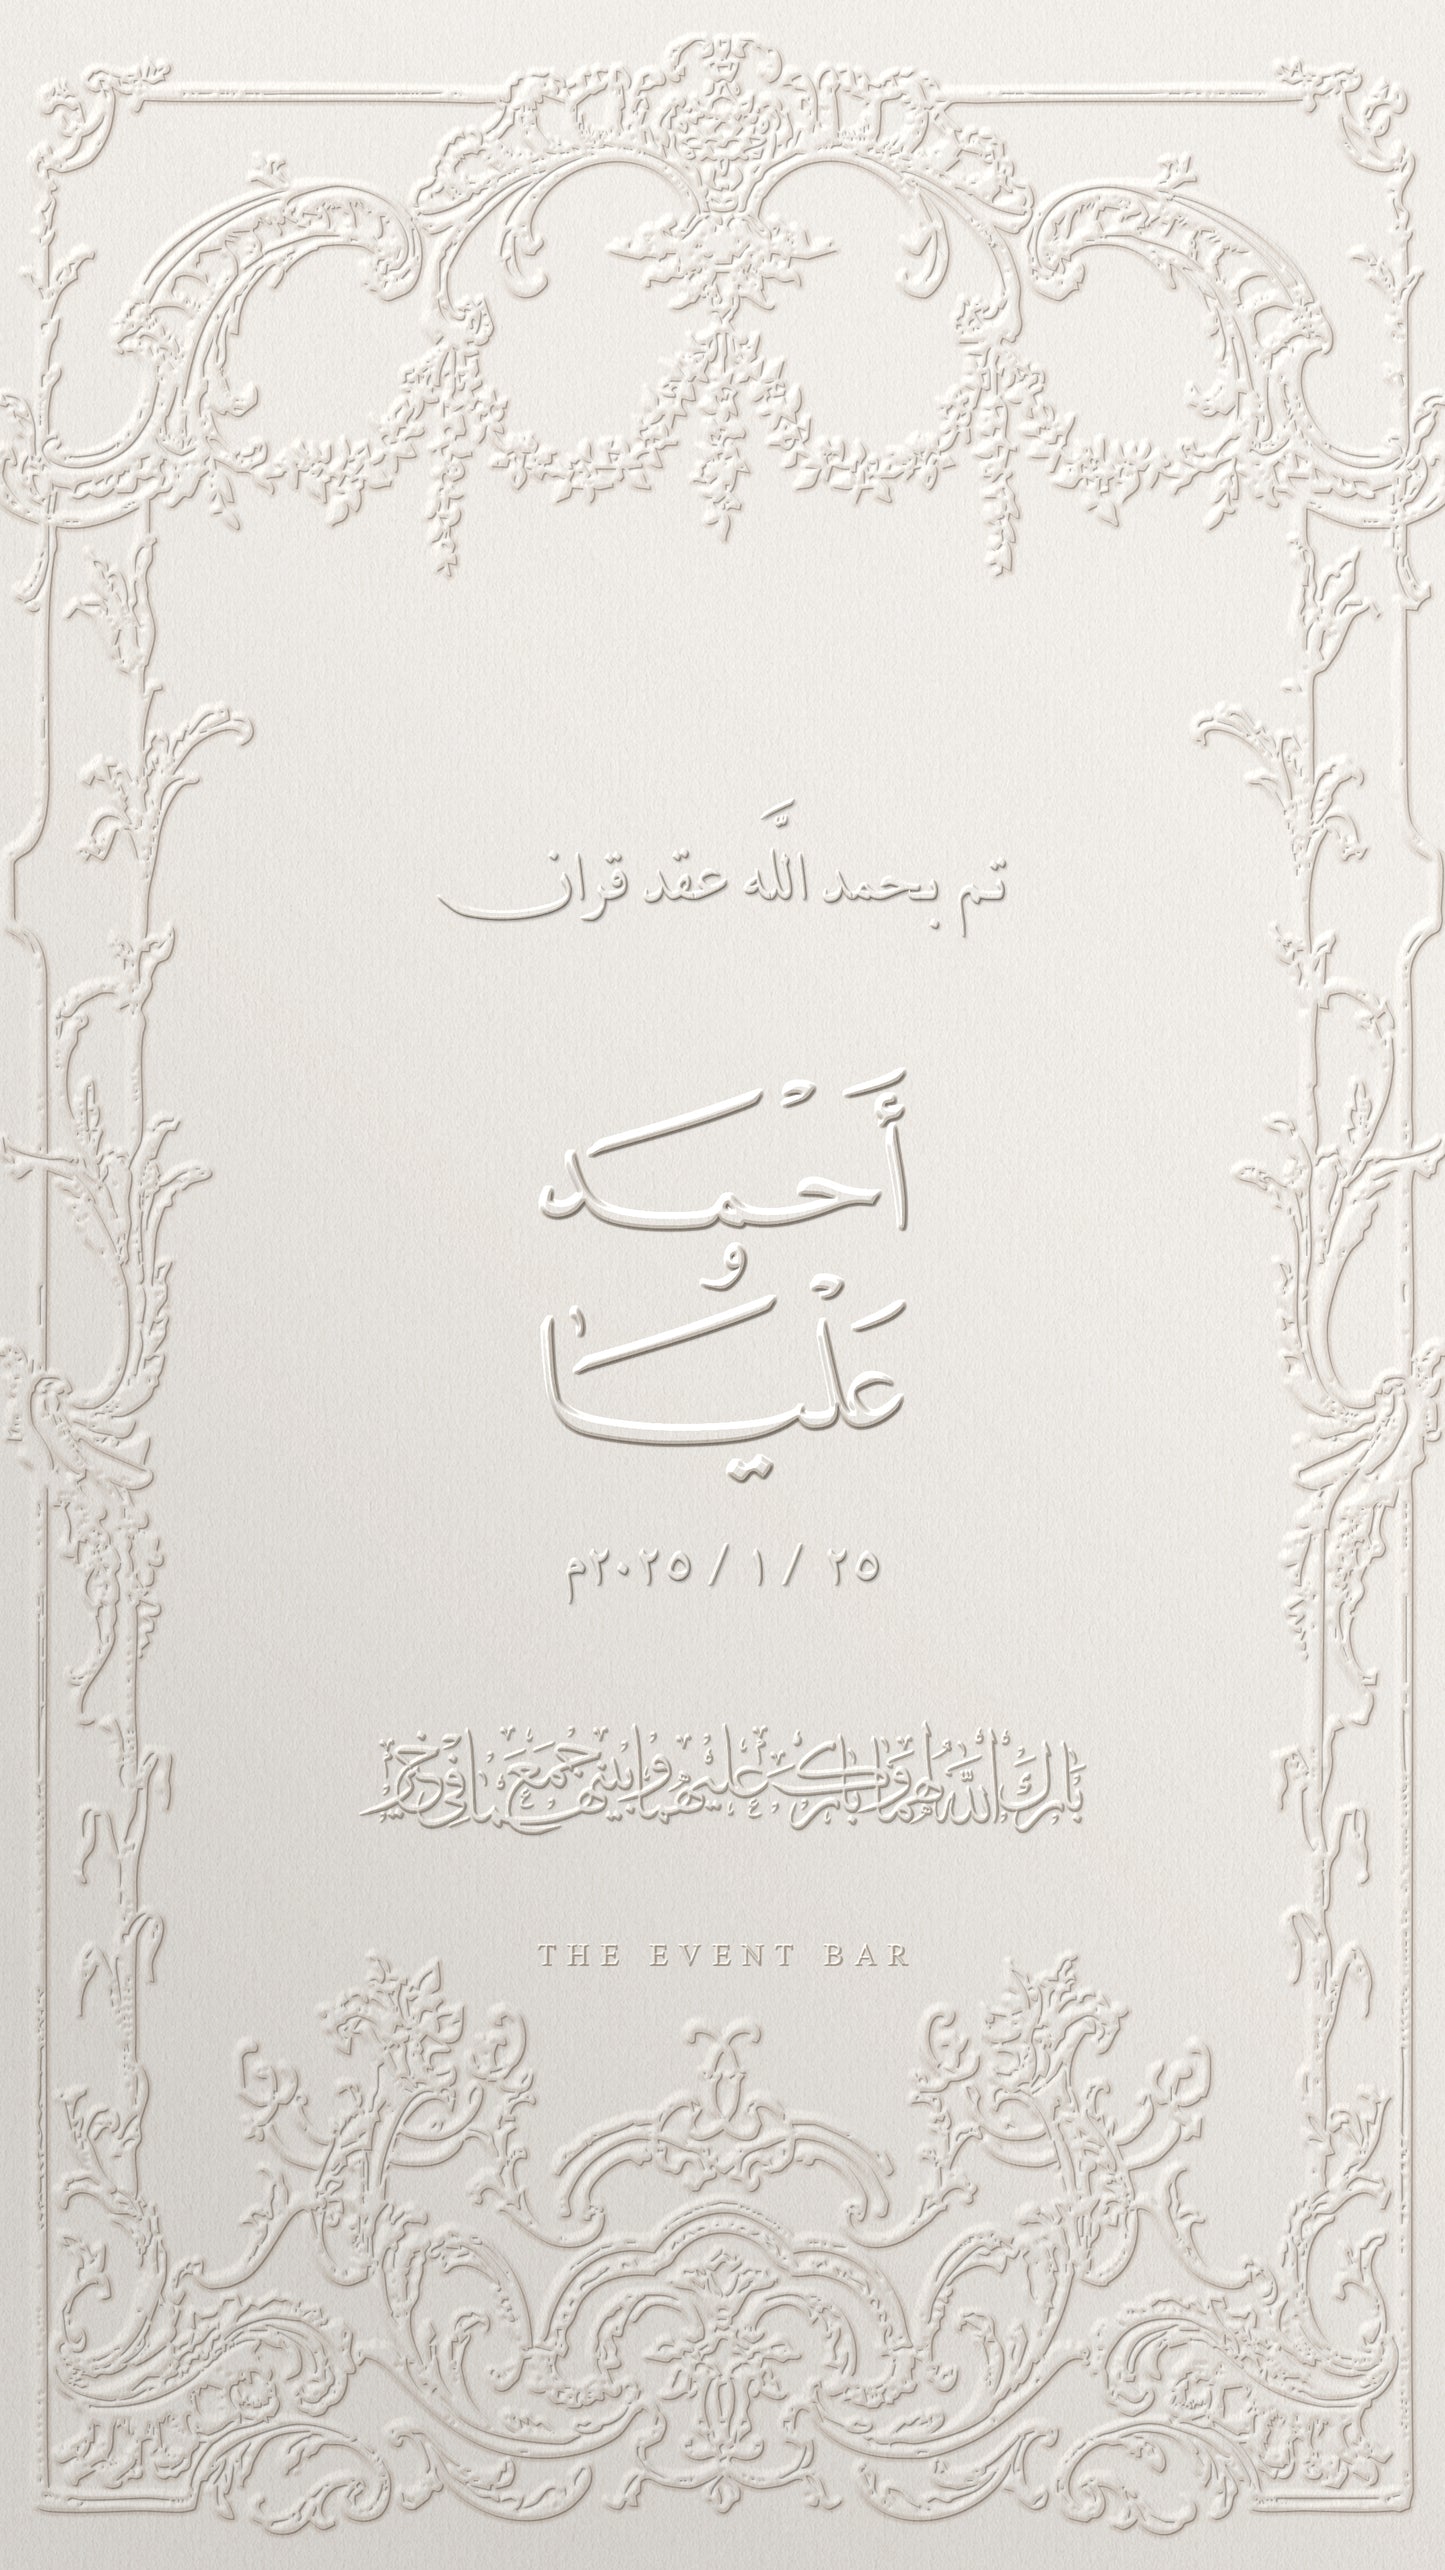 تم بحمد اللَّه عقد قران
أَحْمَد
و
عَلْيَا
٢٥ / ١ / ٢٠٢٥م
بَارَكَ اللَّهُ لَهُمَا وَبَارَكَ عَلَيْهِمَا وَجَمَعَ بَيْنَهُمَا فِي خَيْرٍ
THE EVENT BAR